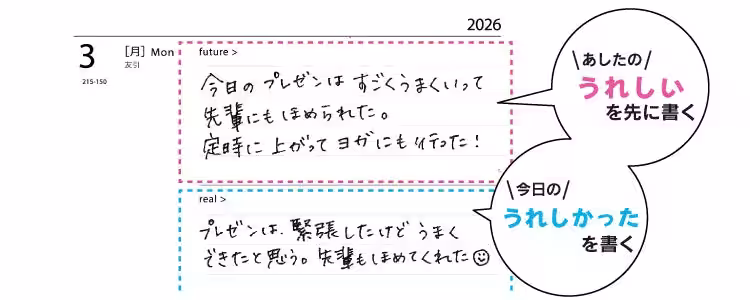 2026
3 [月] Mon
友引
215-150
future >
今日の プレゼンは すごくうまくいって
先輩にもほめられた。
定時に 上がって ヨガにも行った!
\あしたの/
うれしい
を先に書く
real >
プレゼンは、緊張したけど うまく
できたと思う。先輩もほめてくれた
\今日の/
うれしかった
を書く